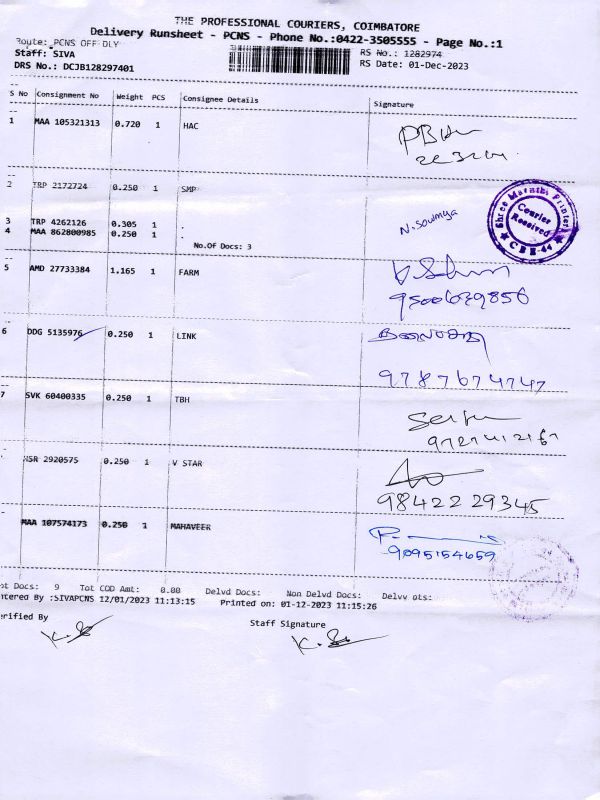 THE PROFESSIONAL COURIERS, COIMBATORE
Delivery Runsheet - PCNS - Phone No.:0422-3505555 - Page No.:1
Route: PCNS OFF DLY
RS No.: 1282974
Staff: SIVA
RS Date: 01-Dec-2023
DRS No.: DCJB128297401
S No Consignment No Weight PCS Consignee Details Signature
1 MAA 105321313 0.720 1 HAC
2 TRP 2172724 0.250 1 SMP
3 TRP 4262126 0.305 1 .
N. Soumya
4 MAA 862800985 0.250 1 .
No.Of Docs: 3
Shree Maruthi Printers
Courier
Received
CBE-44
5 AMD 27733384 1.165 1 FARM
6 DDG 5135976 0.250 1 LINK
9787674747
7 SVK 60400335 0.250 1 TBH
NSR 2920575 0.250 1 V STAR
98422 29345
MAA 107574173 0.250 1 MAHAVEER
9095154659
ot Docs: 9 Tot COD Amt: 0.00 Delvd Docs: Non Delvd Docs: Delvy pts:
ntered By :SIVAPCNS 12/01/2023 11:13:15 Printed on: 01-12-2023 11:15:26
erified By
Staff Signature